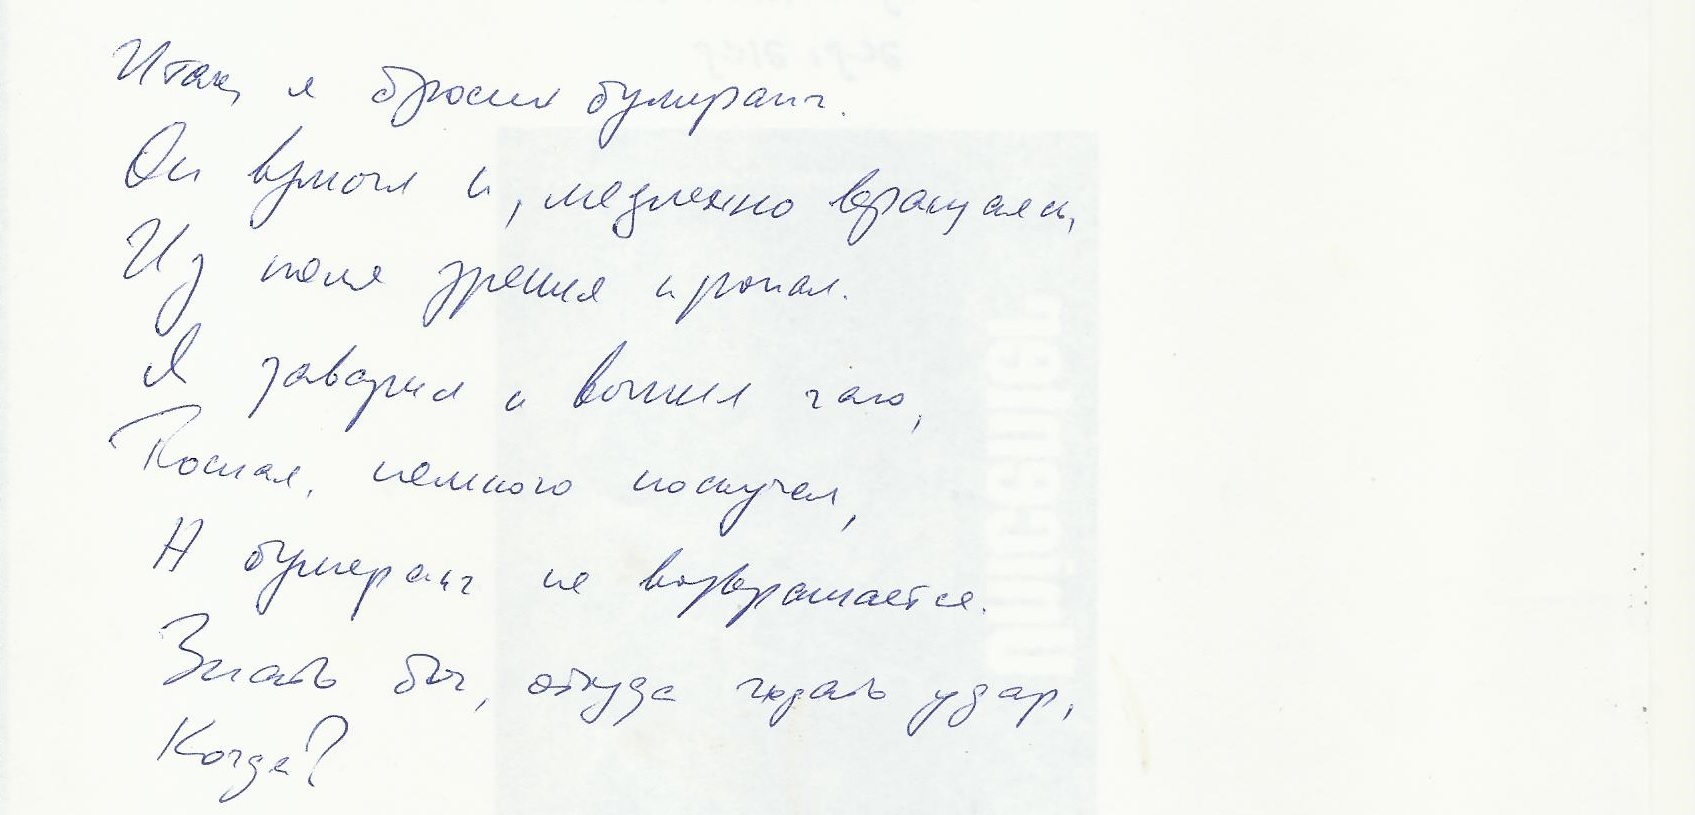 Итак, я бросил бумеранг.
Он взмыл и, медленно вращаясь,
Из поля зрения пропал.
Я заварил и выпил чаю,
Поспал, немного поскучал,
А бумеранг не возвращается.
Знать бы, откуда ждать удар,
Когда?